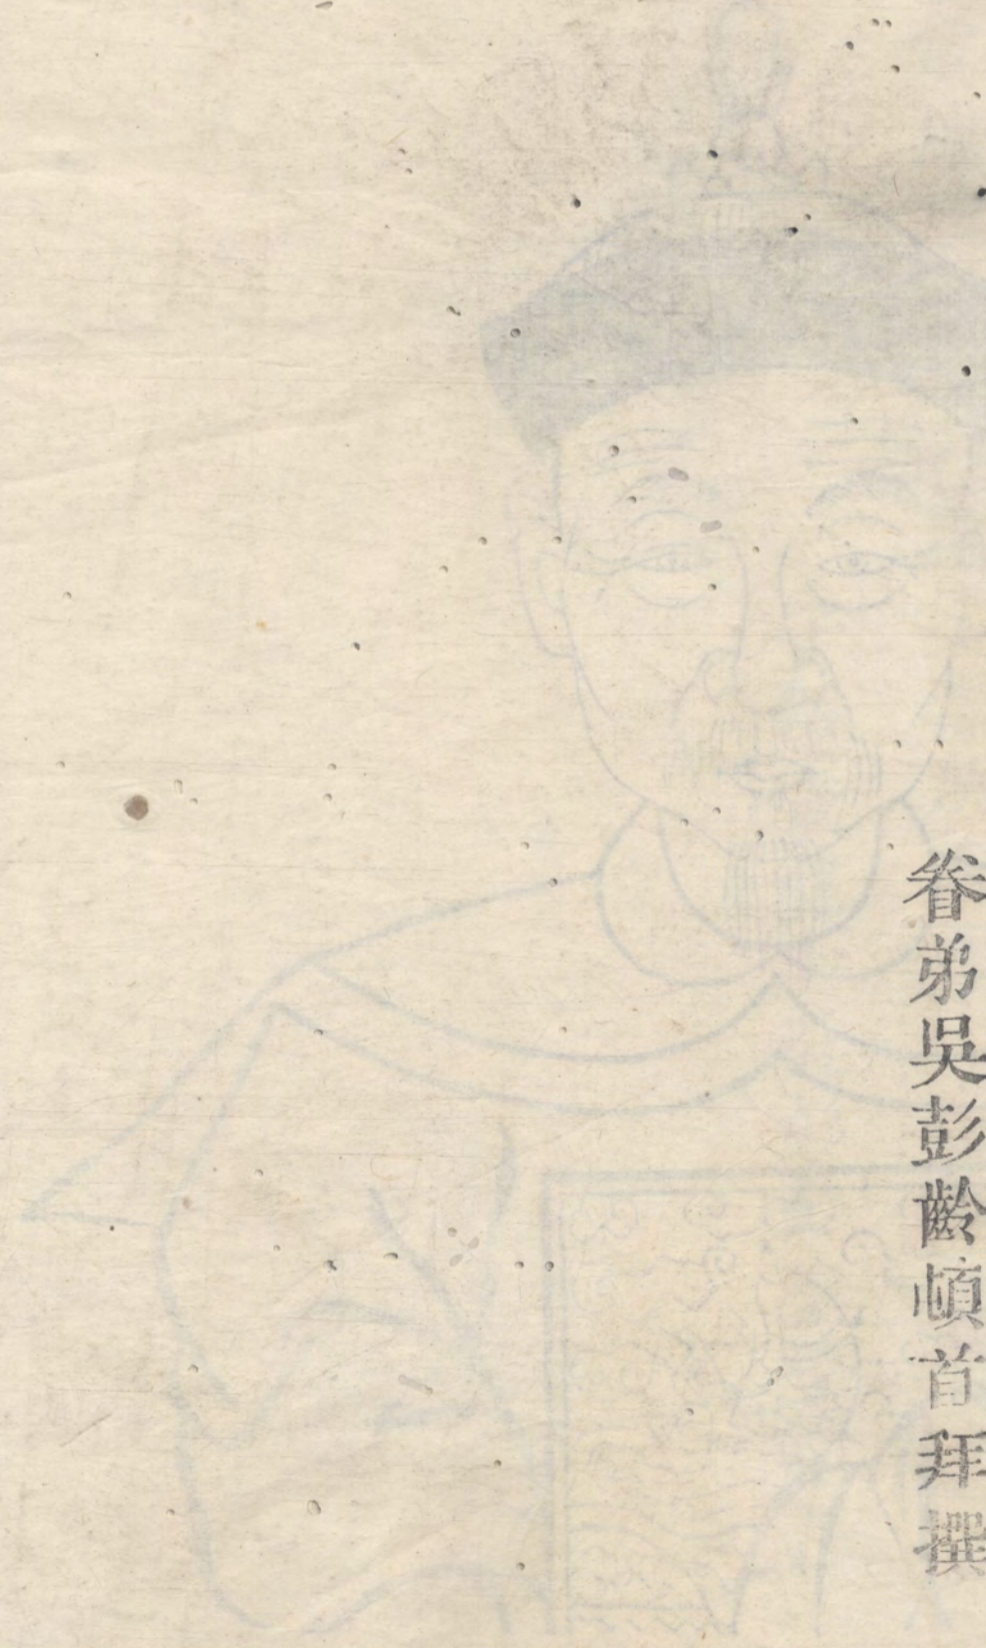 眷弟吳彭齡頓首拜撰